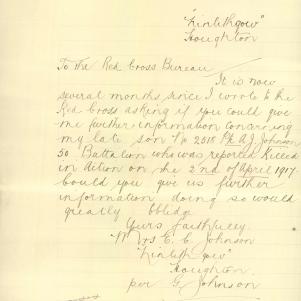 "Kinlithgow"
Houghton
To the Red Cross Bureau
It is now
several months since I wrote to the
Red Cross asking if you could give
me further information concerning
my late son No 2518 Pte A J Johnson
50 Battalion who was reported Killed
in Action on the 2nd of April 1917
Could you give us further
information doing so would
greatly oblidge
Yours faithfully
Mrs E. E. Johnson
"Kinlithgow"
Houghton.
per G Johnson